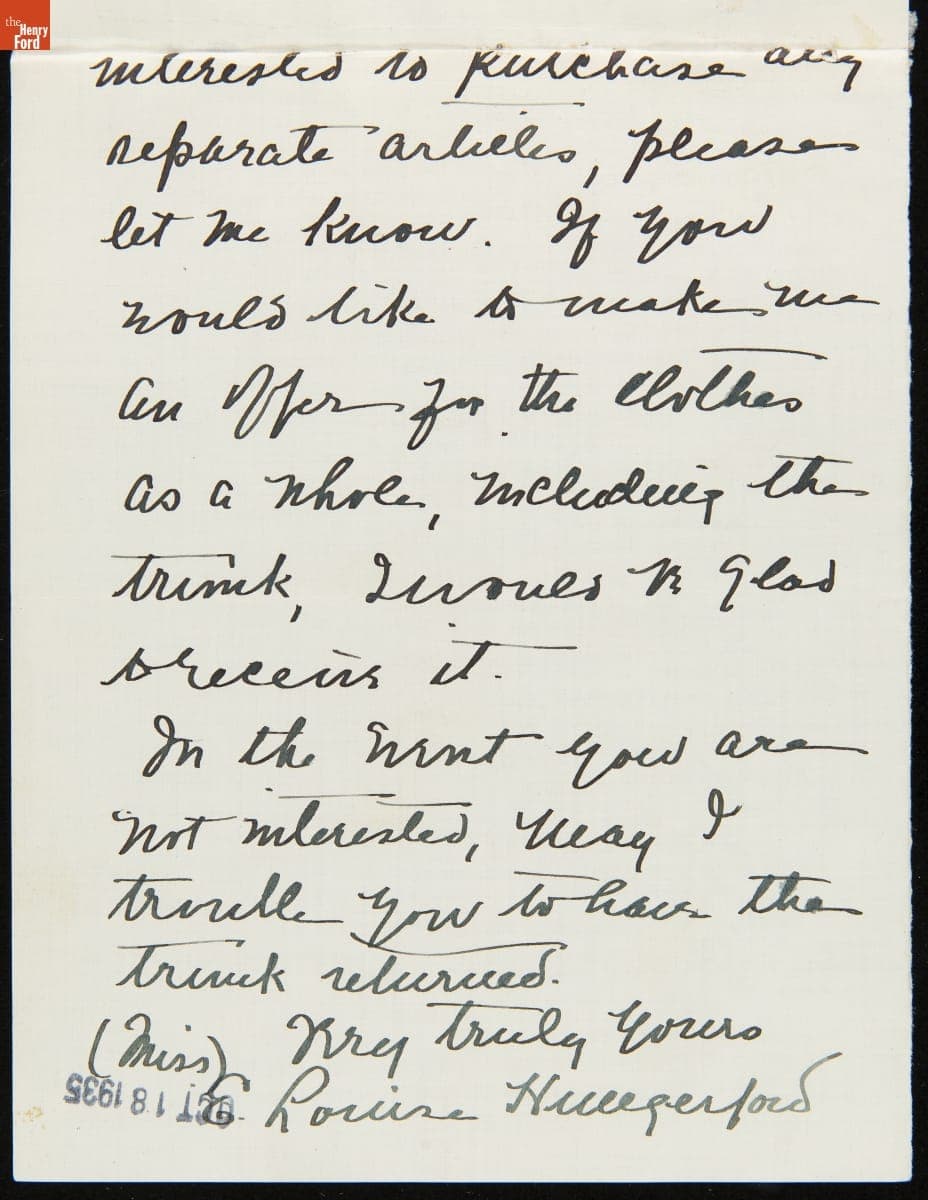 the
Henry
Ford
interested to purchase any
separate articles, please
let me know. If you
would like to make me
an offer for the clothes
as a whole, including the
trunk, I would be glad
to receive it.
In the event you are
not interested, may I
trouble you to have the
trunk returned.
Very truly yours
(Miss) E Louise Hungerford
OCT 18 1935